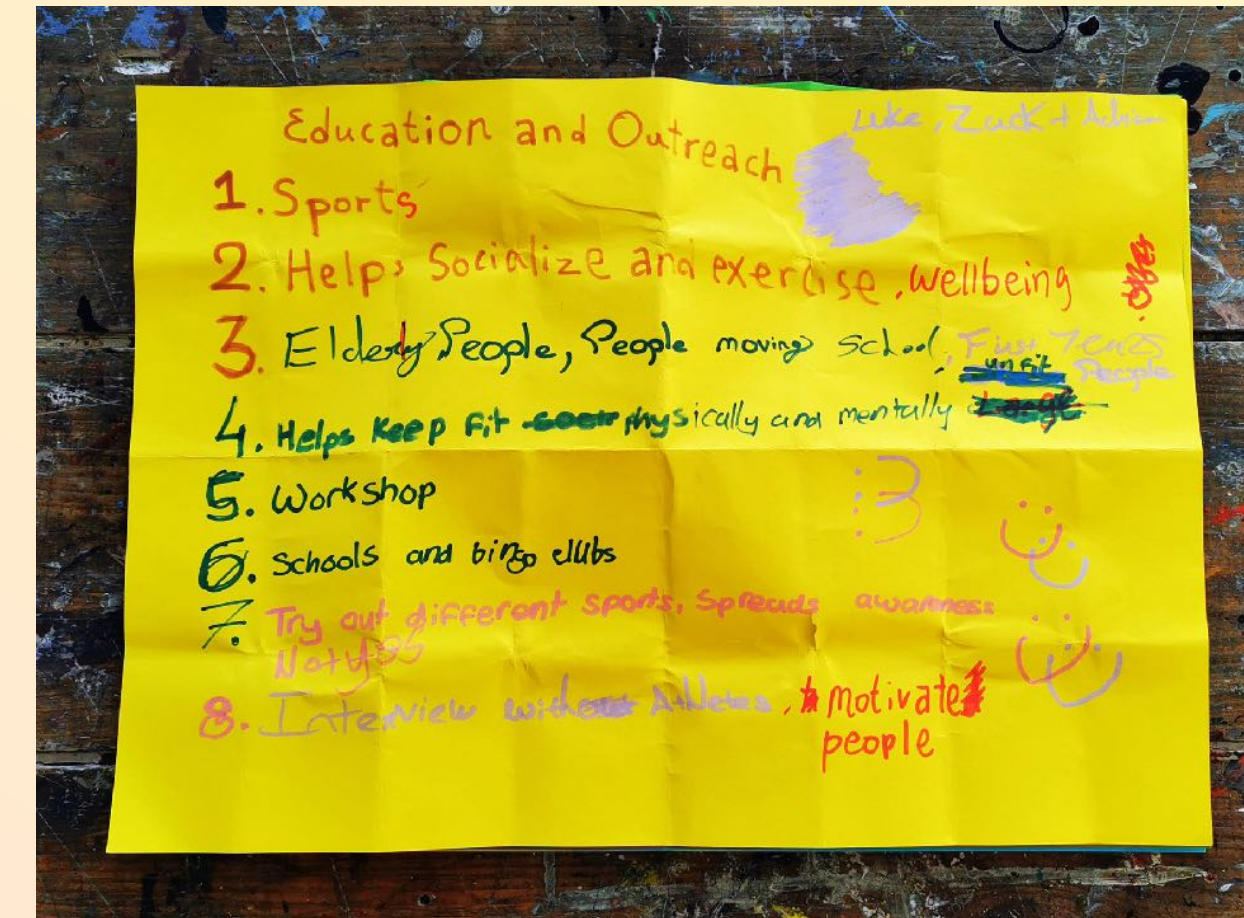 Education and Outreach
Luke, Zuck +
1. Sports
2. Helps Socialize and exercise, wellbeing
3. Elderly People, People moving school, First Years
un fit People
4. Helps Keep Fit physically and mentally
5. Workshop
6. Schools and bingo clubs
7. Try out different sports, Spreads awareness
8. Interview with Athletes, motivate
people